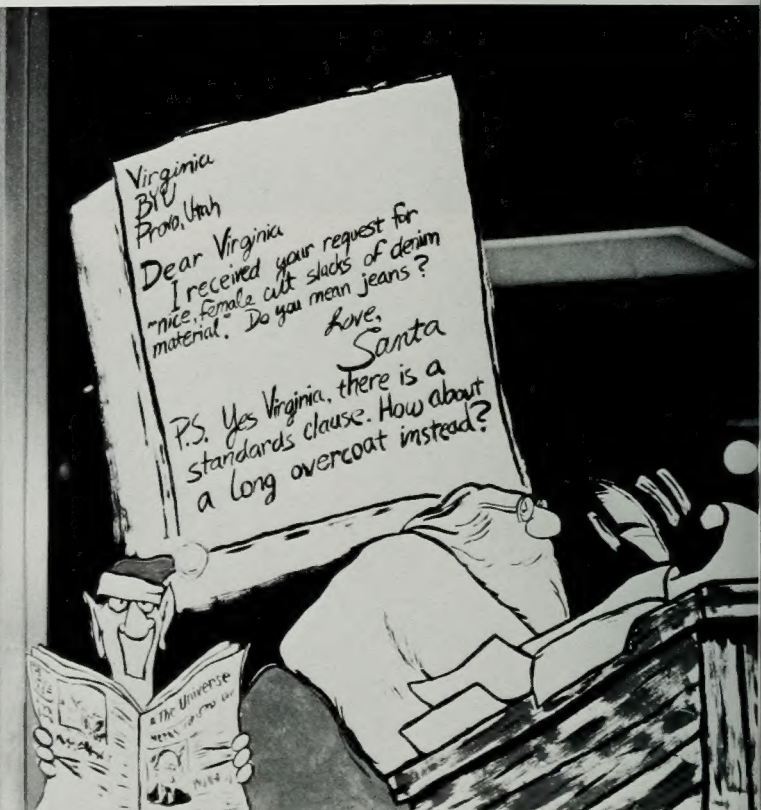 Virginia
BYU
Provo, Utah
Dear Virginia
I received your request for
"nice, female cut slacks of denim
material." Do you mean jeans?
Love,
Santa
P.S. Yes Virginia, there is a
standards clause. How about
a long overcoat instead?
The Universe